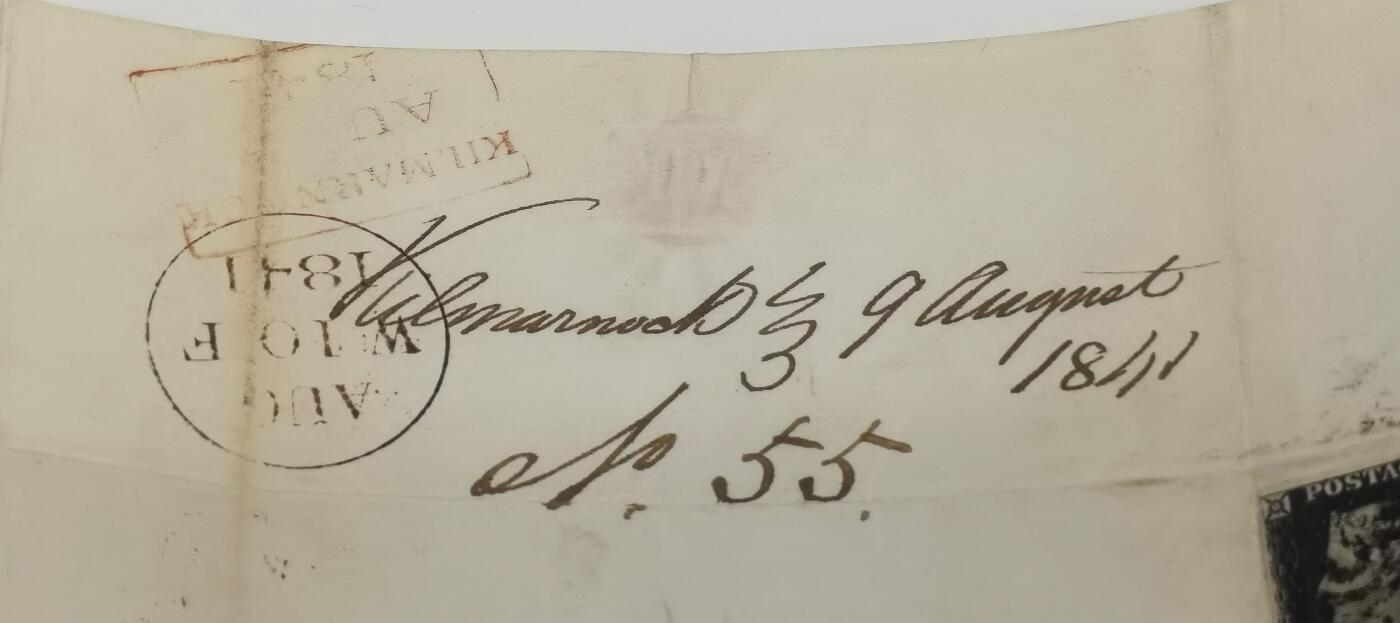 KILMARNOCK
AU
1841
AUG
W 10 F
1841
Kilmarnock 9 August
1841
No. 55.
POSTA